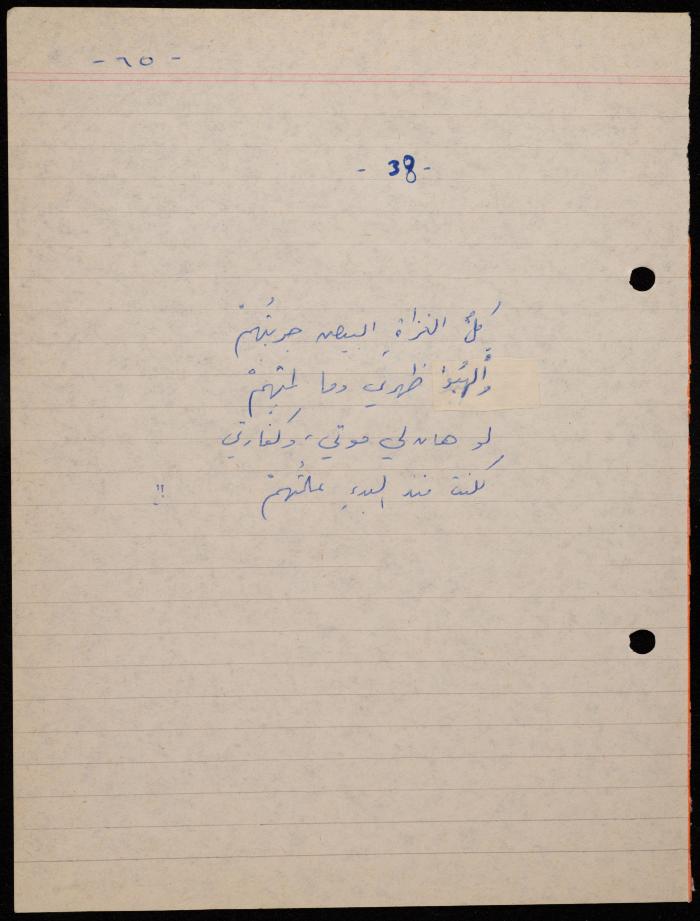 - ٦٥ -
- 38 -
كلُّ الغزاةِ البيض جربتُهمْ
وأَلهبُوا ظهري وما لمتهمْ
لو هان لي موتي، وكفارتي
كنت منذ البدءِ سالمتُهمْ !!